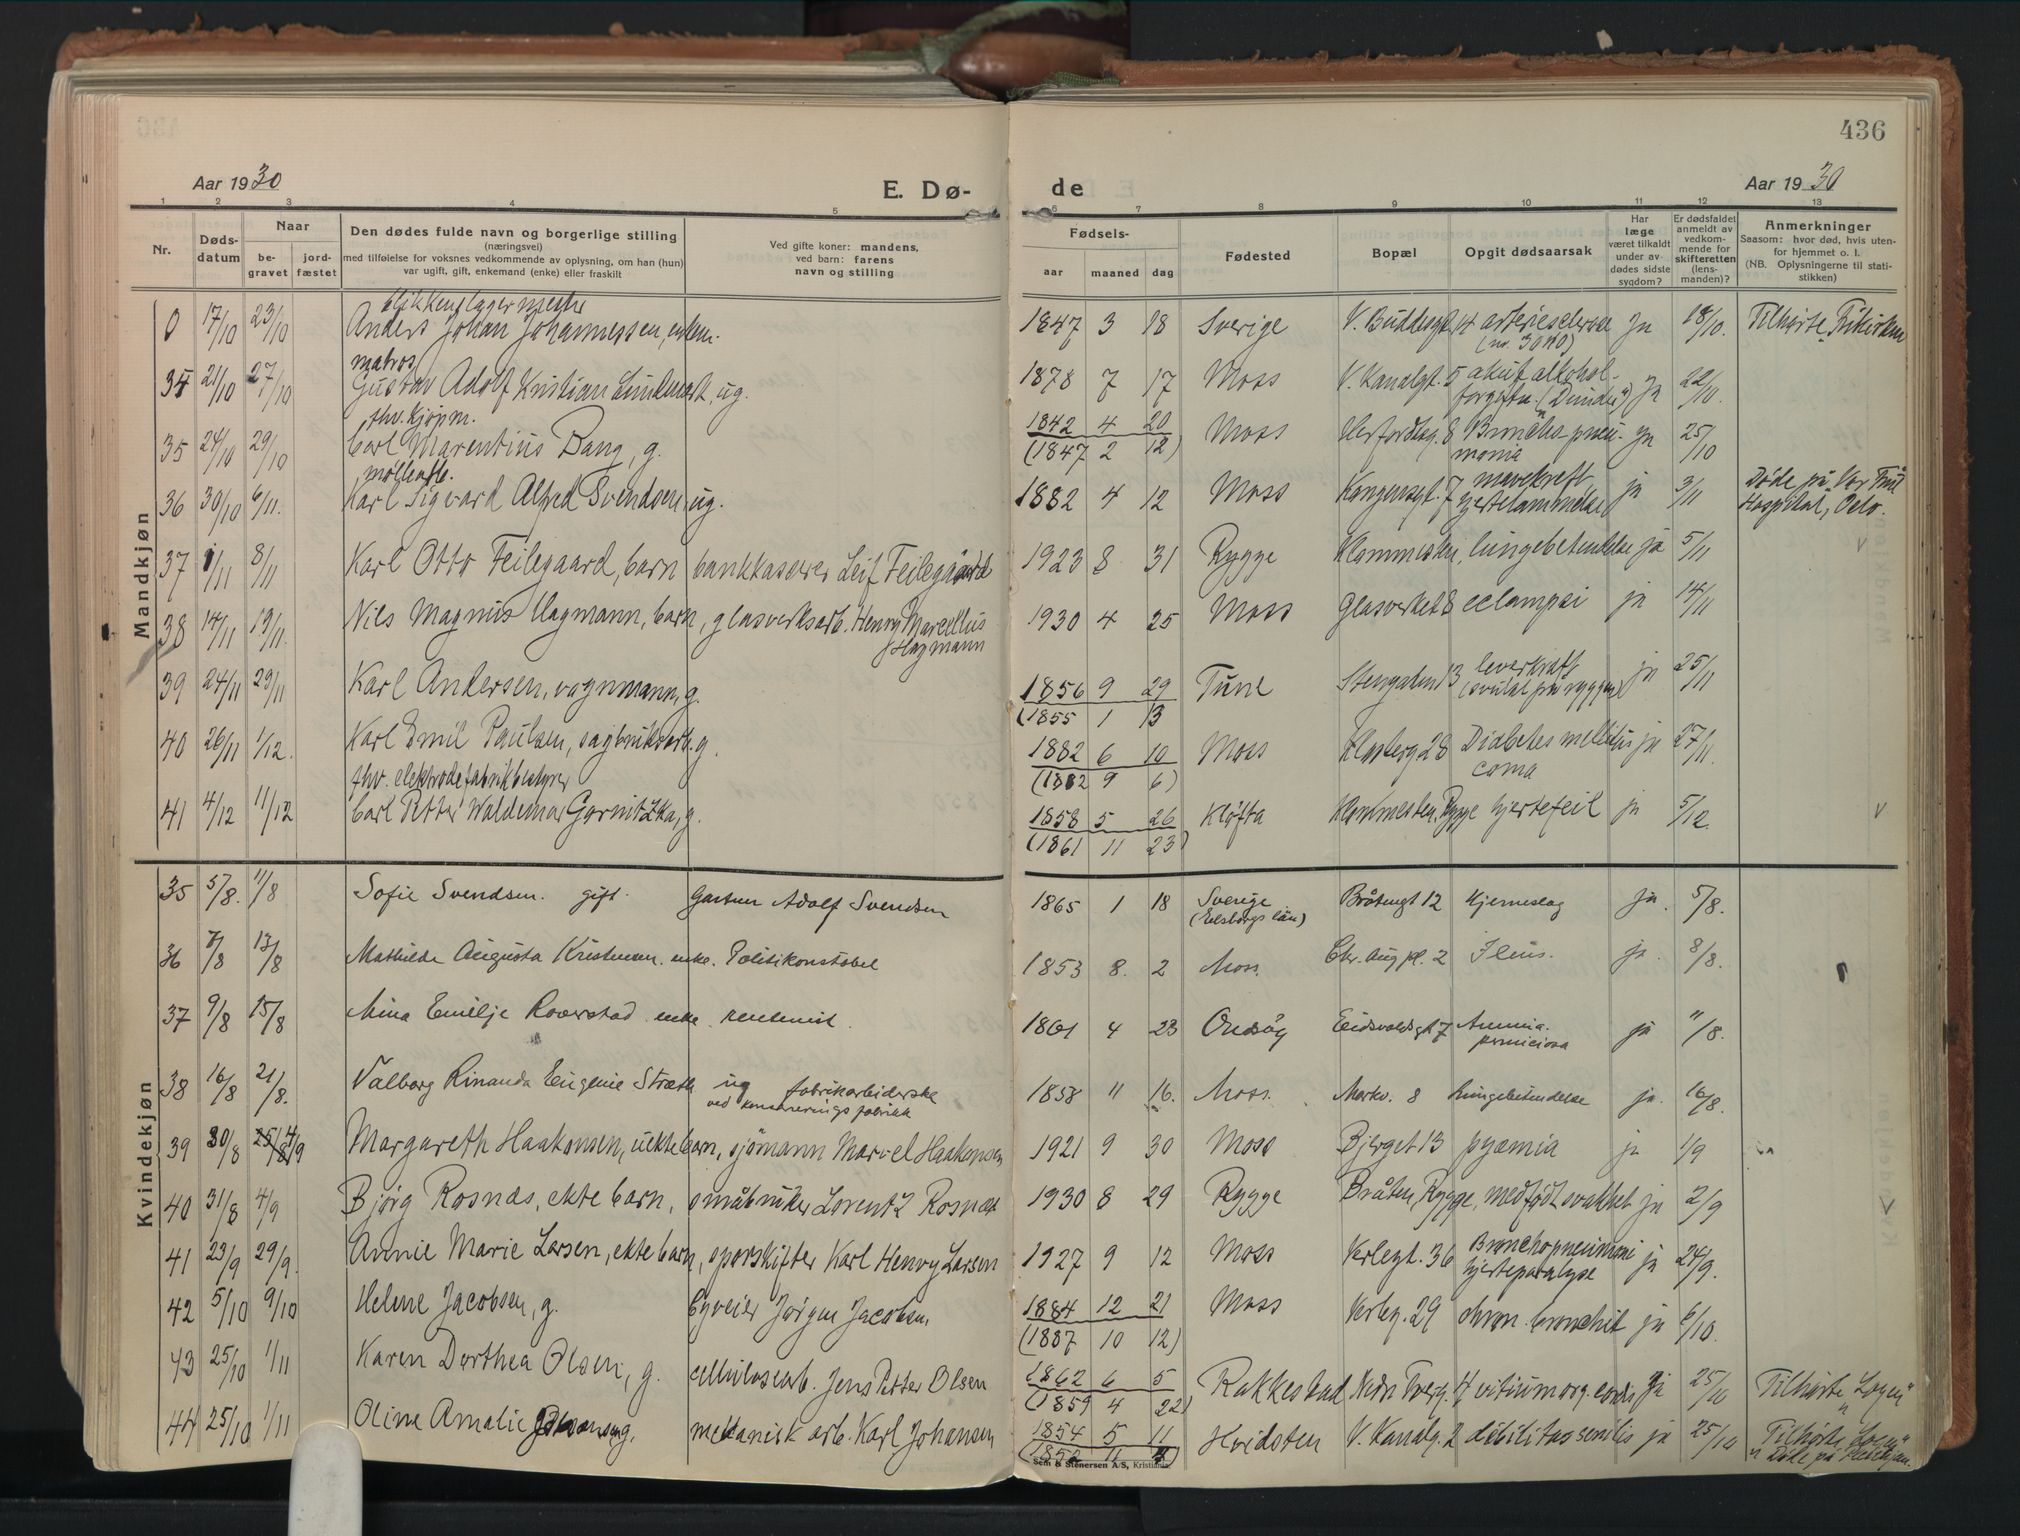 436
Aar 1930
E. Dø-
de
Aar 1930
1 2 3 4 5 6 7 8 9 10 11 12 13
Nr.
Døds-
datum
Naar
be-
gravet
jord-
fæstet
Den dødes fulde navn og borgerlige stilling
(næringsvei)
med tilføielse for voksnes vedkommende av oplysning, om han (hun)
var ugift, gift, enkemand (enke) eller fraskilt
Ved gifte koner: mandens,
ved barn: farens
navn og stilling
Fødsels-
aar maaned dag
Fødested
Bopæl
Opgit dødsaarsak
Har
læge
været tilkaldt
under av-
dødes sidste
sygdom?
Er dødsfaldet
anmeldt av
vedkom-
mende for
skifteretten
(lens-
manden)?
Anmerkninger
Saasom: hvor død, hvis uten-
for hjemmet o. l.
(NB. Oplysningerne til stati-
stikken)
Mandkjøn
blikkenslagermester
0 17/10 23/10 Anders Johan Johannessen, enkem. 1847 3 18 Sverige V. Buddesgt. 14 arteriesclerose Ja 18/10. Tilhørte Frikirken
(nr. 30 1/10)
matros
34 21/10 27/10 Gustav Adolf Kristian Lindmark, ug. 1878 7 17 Moss V. Kanalgt. 5 akut alkohol- Ja 22/10.
forgiftn.
fhv. kjøpm.
35 24/10 29/10 Carl Marentius Bang, g. 1842 4 20 Moss Herfordsg. 8 Broncho pneu- ja 25/10
(1847 2 12) monia
møllearb.
36 30/10 6/11. Karl Sigvard Alfred Svendsen, ug. 1882 4 12 Moss Kongensgt. 7 mavekreft ja 3/11 Døde på Vor Frue
hjertelammelse Hospital, Oslo.
37 1/11 8/11 Karl Otto Feilegaard, barn bankkaserer Leif Feilegaard 1923 8 31 Rygge lungebetendelse ja 5/11
38 14/11 19/11. Nils Magnus Hagmann, barn, glasverksarb. Henry Marcellus 1930 4 25 Moss Glasverket 8 eclampsi ja 14/11
Hagmann
39 24/11 29/11 Karl Andersen, vognmann, g. 1856 9 29 Tune Stengaten 13 leverkræft ja 25/11
(1855 1 13 (svulst på ryggen)
40 26/11 1/12. Karl Emil Paulsen, sagbruksarb. g. 1882 6 10 Moss Klosterg 28 Diabetes mellitus ja 27/11.
(1882 9 6) coma
fhv. elektrodefabrikbestyrer
41 4/12 11/12 Carl Petter Waldemar Garnitzka, g. 1858 5 26 Kløfta Rygge hjertefeil ja 5/12.
(1861 11 23)
Kvindekjøn
35 5/8. 11/8 Sofie Svendsen. gift. Gartner Adolf Svendsen 1865 1 18 Sverige Bråtengt 12 Hjerneslag ja. 5/8.
(Elfsborgs län)
36 7/8 13/8 Mathilde Augusta Kristensen. enke. Politikonstabel 1853 8. 2 Moss. Chr. Aug pl. 2 Ileus. ja. 8/8.
37 9/8 15/8 Mina Emilje Roverstad enke. rentenist. 1861 4 23 Onsøy Eidsvoldsgt 7 Anemia. ja 11/8.
perniciosa
38 16/8 21/8. Valborg Rinanda Eugenie Stræth ug fabrikarbeiderske 1858 11 16. Moss. Markv. 8 Lungebetendelse ja. 16/8.
ved konserveringsfabrikk
39 30/8 4/9 Margareth Haakonsen, uekte barn, sjømann Marcel Haakonsen 1921 9 30 Moss Bjerget 13 pyæmia ja 1/9
40 31/8 4/9 Bjørg Rosnæs, ekte barn, småbruker Lorentz Rosnæs 1930 8 29 Rygge Bråten, Rygge, medfødt svakhet ja 2/9
41 23/9 29/9. Annie Marie Larsen, ekte barn, sporskifter Karl Henry Larsen 1927 9 12 Moss Verlegt. 36 Bronchopneumoni ja 24/9.
hjerteparalyse
42 5/10 9/10 Helene Jacobsen, g. byveier Jørgen Jacobsen. 1884 12 21 Moss Verleg. 29 chron. bronchit ja 6/10.
(1887 10 12)
43 25/10 1/11 Karen Dorthea Olsen, g. cellulosearb. Jens Petter Olsen 1862 6 5 Rakkestad Nedr Tverg. 4 vitium org. cordis ja 25/10 Tilhørte „Logen"
(1859 4 22)
44 25/10 1/11 Oline Amalie Johansen g. mekanisk arb. Karl Johansen 1854 5 11 Hvidsten V. Kanalg. 2 debilitas senilis ja 25/10 Tilhørte „Logen"
Sem & Stenersen A/S, Kristiania.